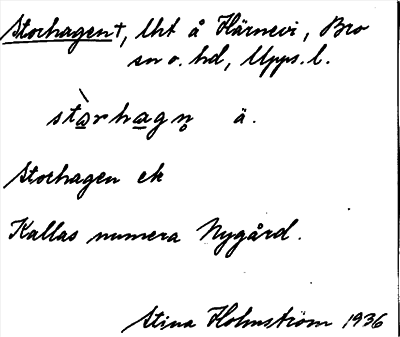 Storhagen†, lht å Härnevi, Bro
sn o. hd, Upps. l.
stàrhagn̥ ä.
Storhagen ek
Kallas numera Nygård.
Stina Holmström 1936